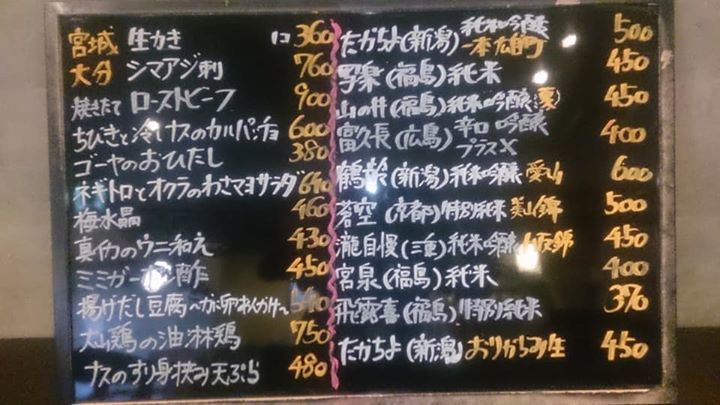 宮城 生かき 1コ 360
大分 シマアジ刺 760
焼きたて ローストビーフ 900
ちびきと冷しナスのカルパッチョ 600
ゴーヤのおひたし 380
ネギトロとオクラのわさマヨサラダ 640
梅水晶 460
真イカのウニ和え 430
ミミガーポン酢 450
揚げだし豆腐〜カニ卵あんかけ〜 540
大山鶏の油淋鶏 750
ナスのすり身挟み天ぷら 480
たかちよ(新潟) 純米吟醸 一本〆 雄町 500
野楽(福島)純米 450
山の井(福島)純米吟醸(夏) 450
富久長(広島) 辛口 吟醸 プラスX 400
鶴齢(新潟)純米吟醸 愛山 600
蒼空(京都)特別純米 美山錦 500
瀧自慢(三重)純米吟醸 450
宮泉(福島)純米 400
飛露喜(福島)特別純米 390
たかちよ(新潟)おりがらみ生 450